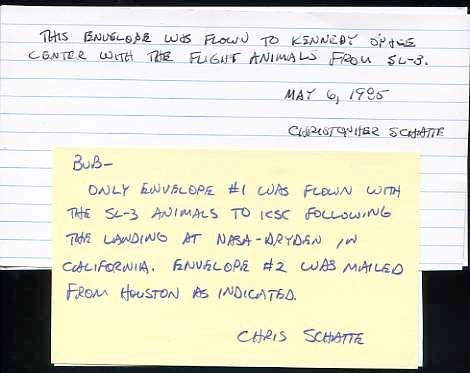 THIS ENVELOPE WAS FLOWN TO KENNEDY SPACE
CENTER WITH THE FLIGHT ANIMALS FROM SL-3.
MAY 6, 1985
CHRISTOPHER SCHATTE
BUB-
ONLY ENVELOPE #1 WAS FLOWN WITH
THE SL-3 ANIMALS TO KSC FOLLOWING
THE LANDING AT NASA-DRYDEN IN
CALIFORNIA. ENVELOPE #2 WAS MAILED
FROM HOUSTON AS INDICATED.
CHRIS SCHATTE